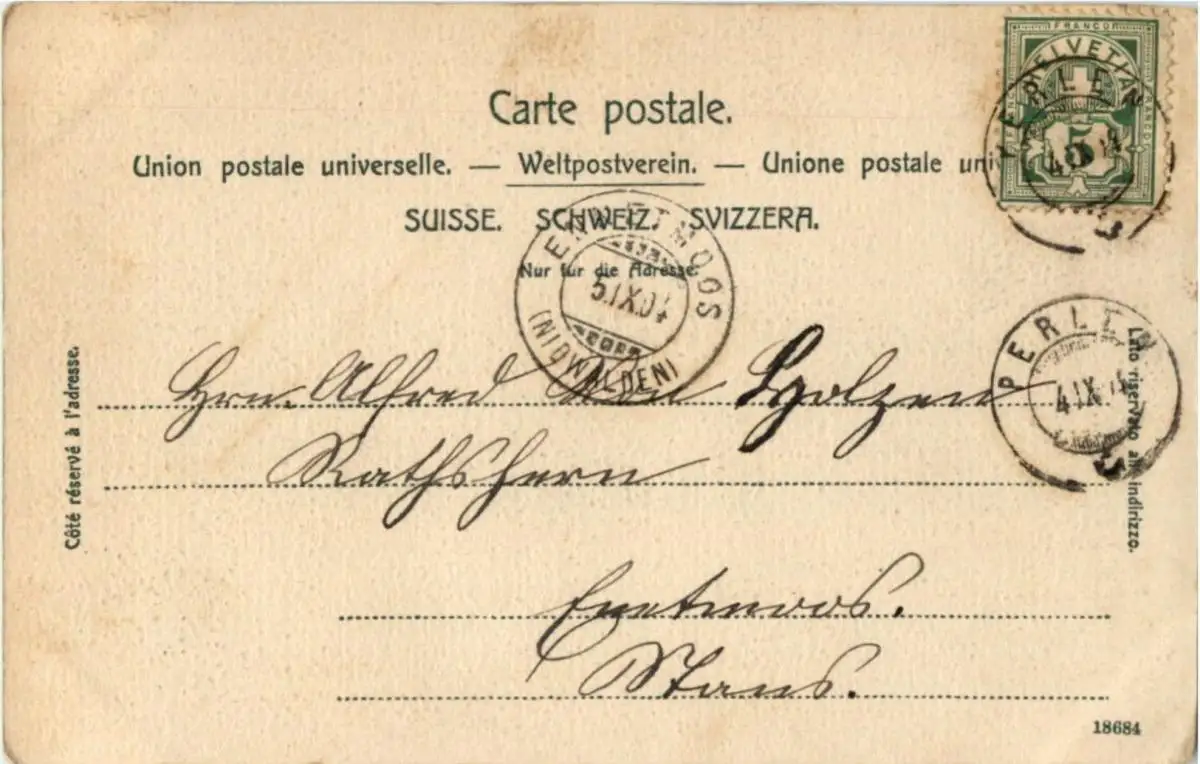 FRANCO
HELVETIA
5
Carte postale.
Union postale universelle. — Weltpostverein. — Unione postale uni
SUISSE. SCHWEIZ. SVIZZERA.
Nur für die Adresse.
ENNETMOOS
5.IX.04
(NIDWALDEN)
PERLEN
4.IX.04
PERLEN
4.IX.04
Côté réservé à l'adresse.
Lato riservato all'indirizzo.
Hrn. Alfred Von Holzen
Rathshern
Ennetmoos.
Stans.
18684